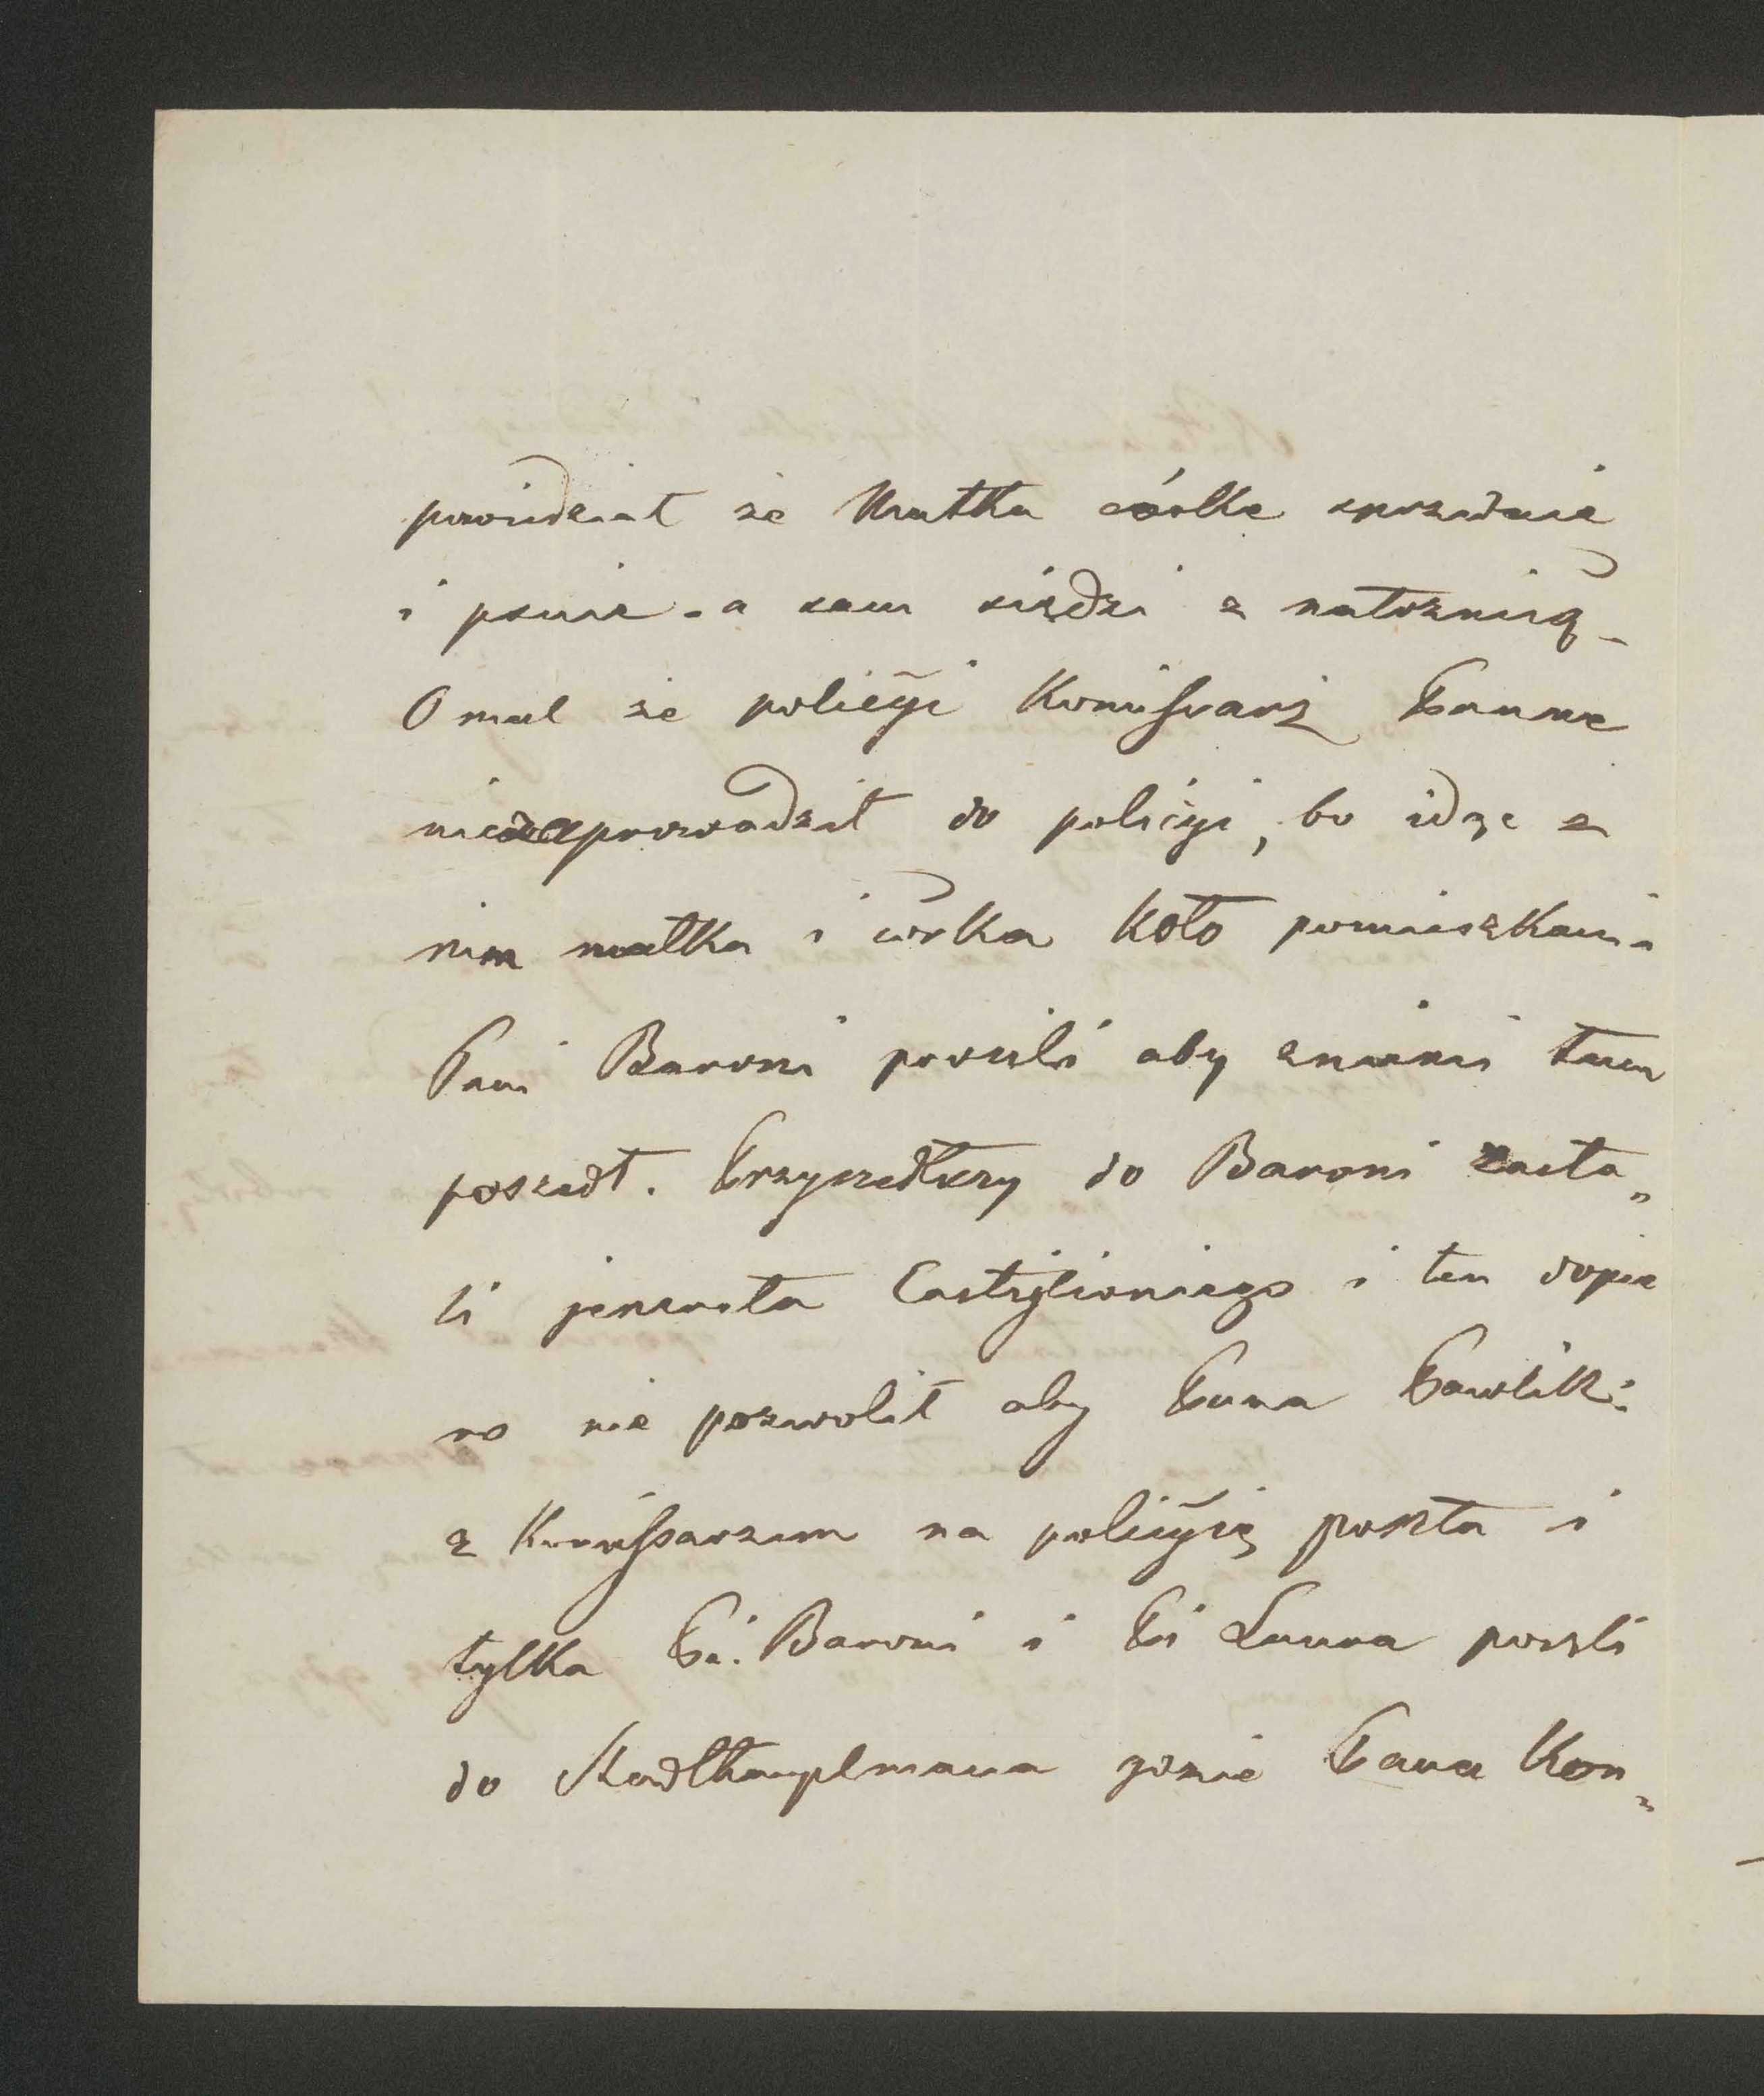 powiedział że Matka córkę sprzedaie
i psuie - a sam siedzi z nałożnicą -
Omal że policyi Komissarz Pannę
niezaprowadził do policyi, bo idąc z
nim matka i córka koło pomieszkania
Pani Baroni prosili aby z niemi tam
poszedł. Przyszedłszy do Baroni zasta„
li jenerała Castiglioniego i ten dopie
ro nie pozwolił aby Panna Pawlik:
z Komissarzem na policyię poszła i
tylko Pi. Baroni i Pi Laura poszli
do Stadthauptmana gdzie Pana Kon„